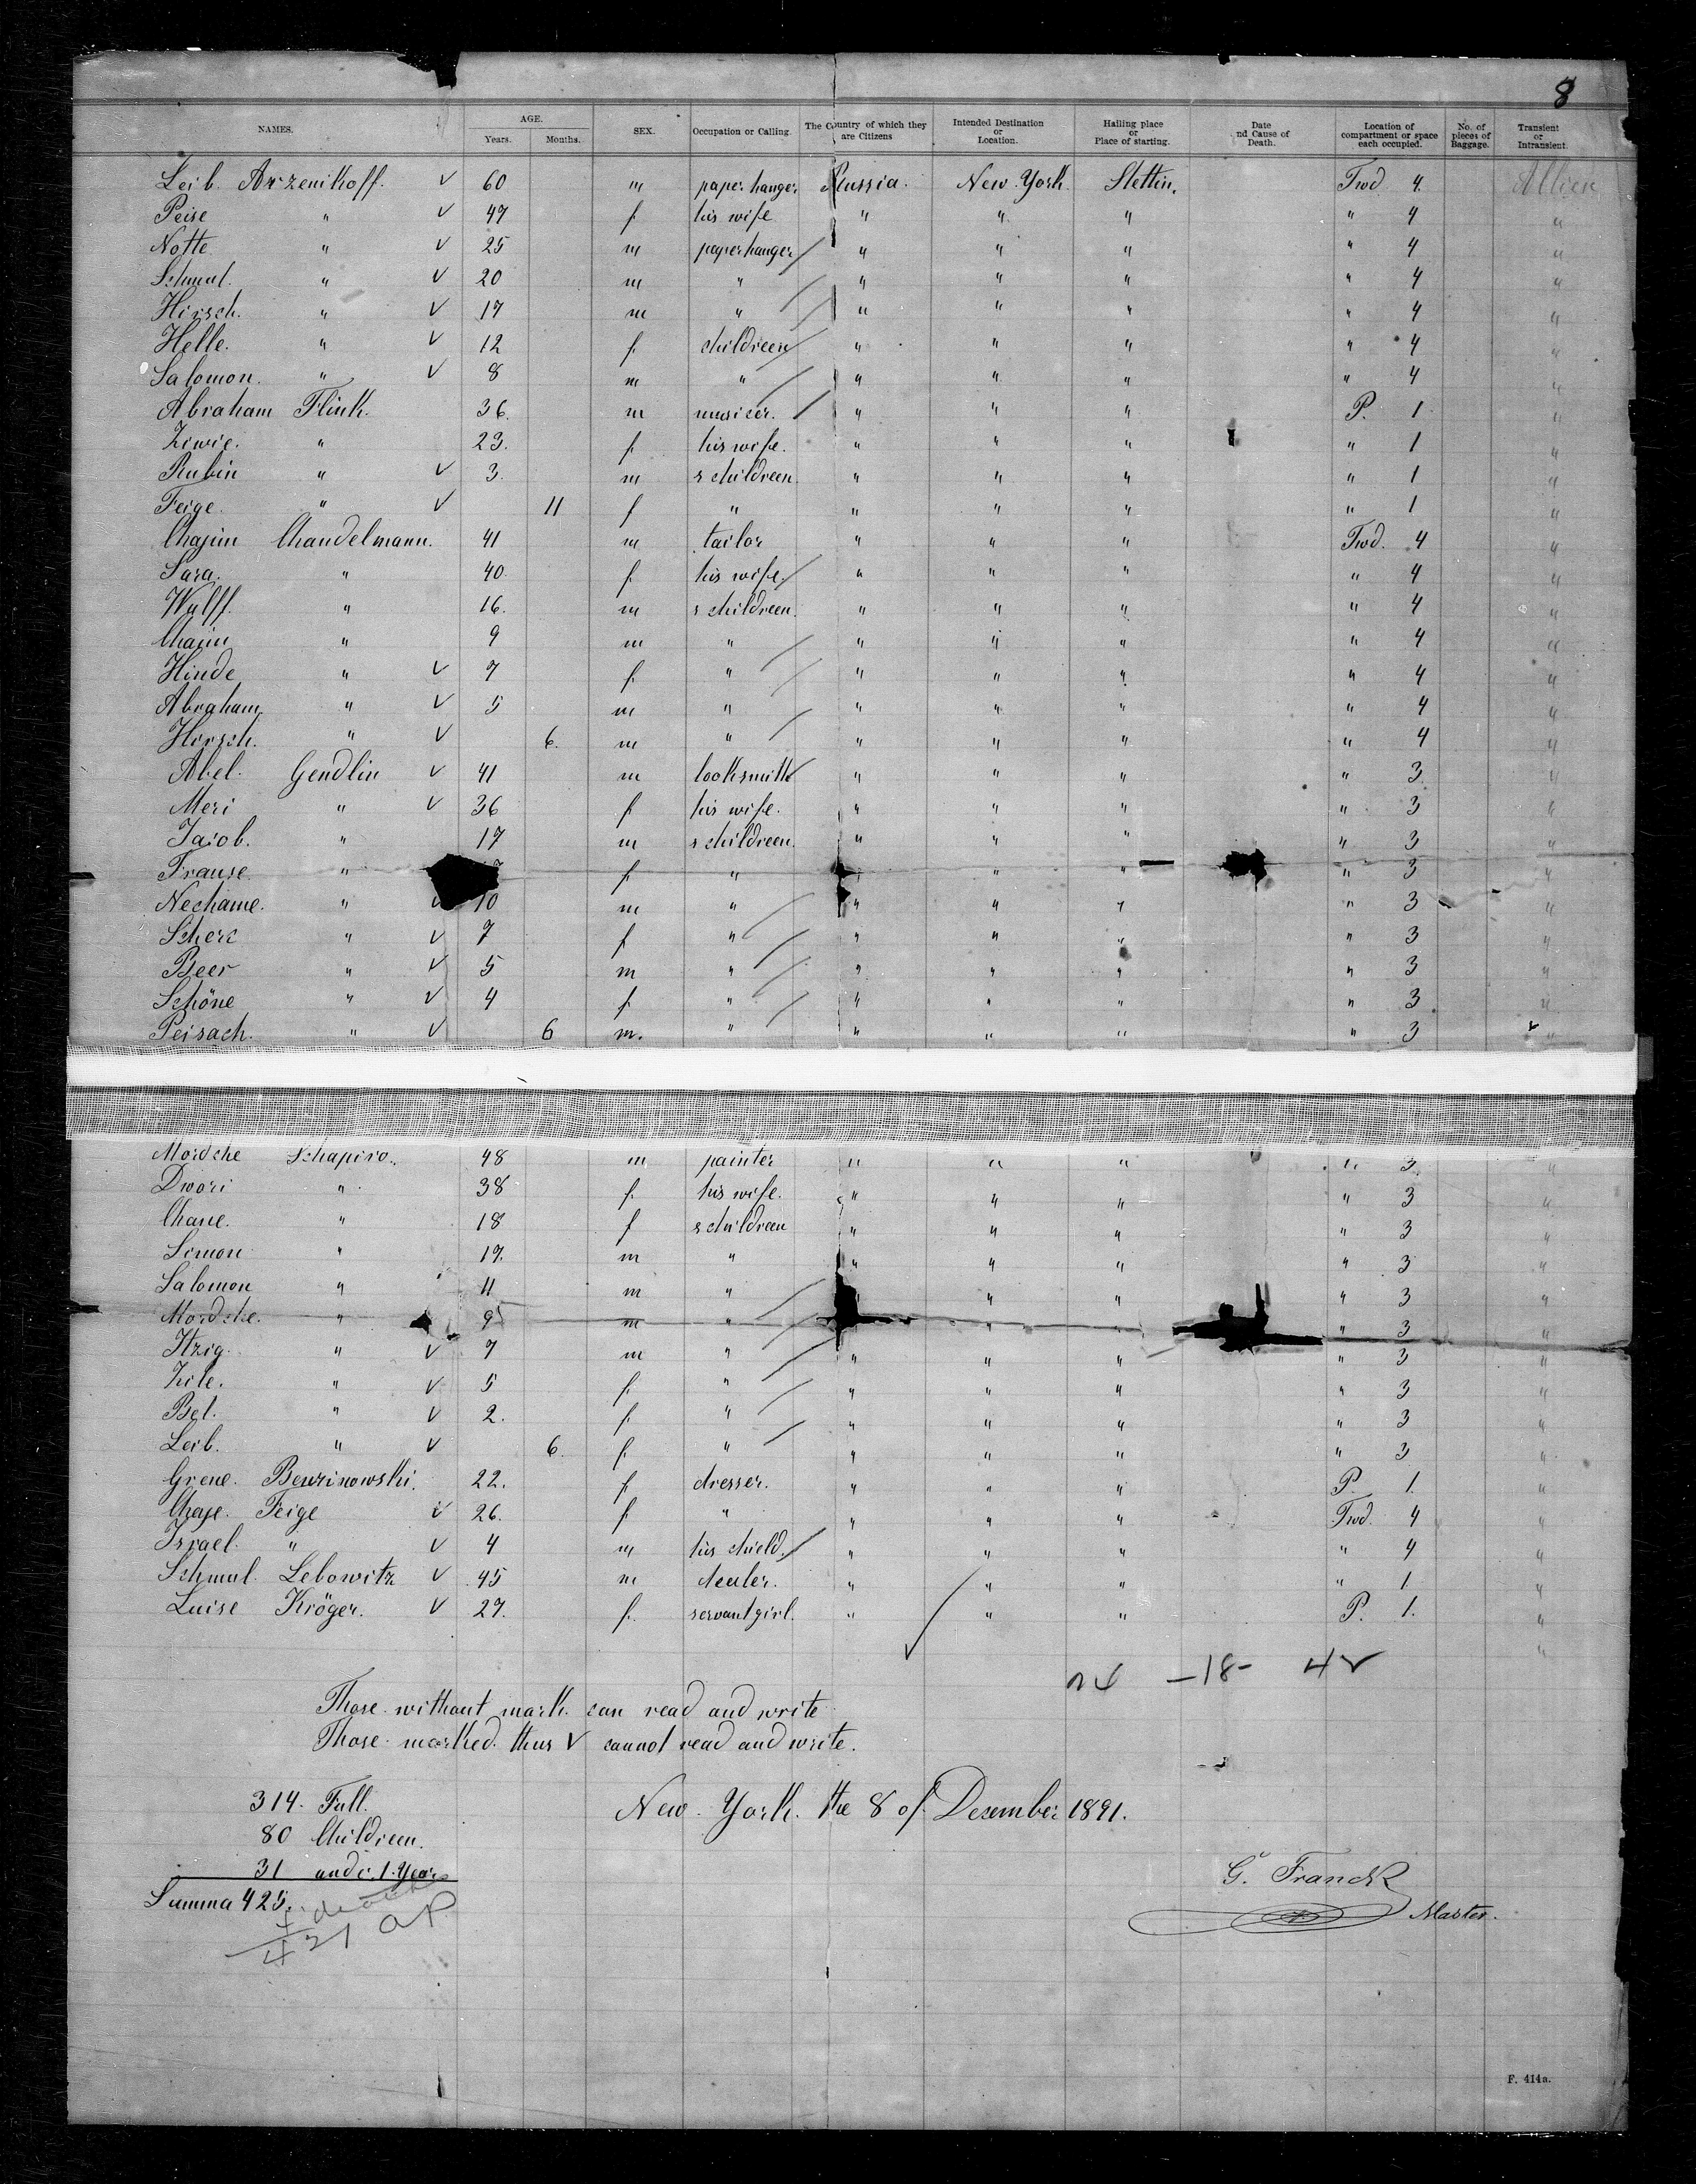 8
NAMES. AGE. Years. Months. SEX. Occupation or Calling. The Country of which they are Citizens Intended Destination or Location. Hailing place or Place of starting. Date nd Cause of Death. Location of compartment or space each occupied. No. of pieces of Baggage. Transient or Intransient.
Leib. Arzenikoff. V 60 m paperhanger Russia. New York Stettin. Twd 4. Allien
Peise " V 47 f. his wife " " " " 4 "
Notte " V 25 m paperhanger " " " " 4 "
Schmul. " V 20 m " " " " " 4 "
Hirsch. " V 17 m " " " " " 4 "
Helle. " V 12 f. childreen " " " " 4 "
Salomon. " V 8 m " " " " " 4 "
Abraham Flink. 36. m musicer. " " " P. 1 "
Ziwie. " 23. f. his wife. " " " " 1 "
Rubin " V 3. m s childreen. " " " " 1 "
Feige. " V 11 f " " " " " 1 "
Chajim Chandelmann. 41 m tailor " " " Twd. 4 "
Sara. " 40. f. his wife. " " " " 4 "
Wulff. " 16. m s childreen. " " " " 4 "
Chaim " 9 m " " " " " 4 "
Hinde " V 7 f. " " " " " 4 "
Abraham. " V 5 m " " " " " 4 "
Hirsch. " V 6. m " " " " " 4 "
Abel. Gendlin V 41 m looksmith " " " " 3 "
Meri " V 36 f his wife. " " " " 3 "
Jacob. " 17 m s childreen. " " " " 3 "
Frause. " f. " " " " " 3 "
Nechame. " V 10 m " " " " " 3 "
Schere " V 7 f " " " " " 3 "
Beer " V 5 m " " " " " 3 "
Schöne " V 4 f. " " " " " 3 "
Peisach. " V 6 m. " " " " " 3 "
Mordche Schapiro. 48 m painter " " " " 3. "
Dwori " 38 f. his wife. " " " " 3 "
Chane. " 18 f s childreen " " " " 3 "
Simon " 17. m " " " " " 3 "
Salomon " 11 m " " " " " 3 "
Mordche. " 9 m " " " " " 3 "
Itzig. " V 7 m " " " " " 3 "
Zile. " V 5 f. " " " " " 3 "
Bel. " V 2. f. " " " " " 3 "
Leib. " V 6. f. " " " " " 3 "
Grene. Benzinowski. 22. f. dresser. " " " P. 1. "
Chaje. Feige V 26. f. " " " " Twd. 4 "
Israel. " V 4 m his child. " " " " 4 "
Schmul. Lebowitz V 45 m dealer. " " " " 1 "
Luise Kröger. V 27. f. servantgirl. " " " P. 1. "
-18- 42
Those without mark can read and write
Those marked thus V cannot read and write.
314. Full.
80 Childreen.
31 under 1. Year
Summa 425.
421
New York. the 8 of Desember 1891.
G. Franck
Master.
F. 414a.